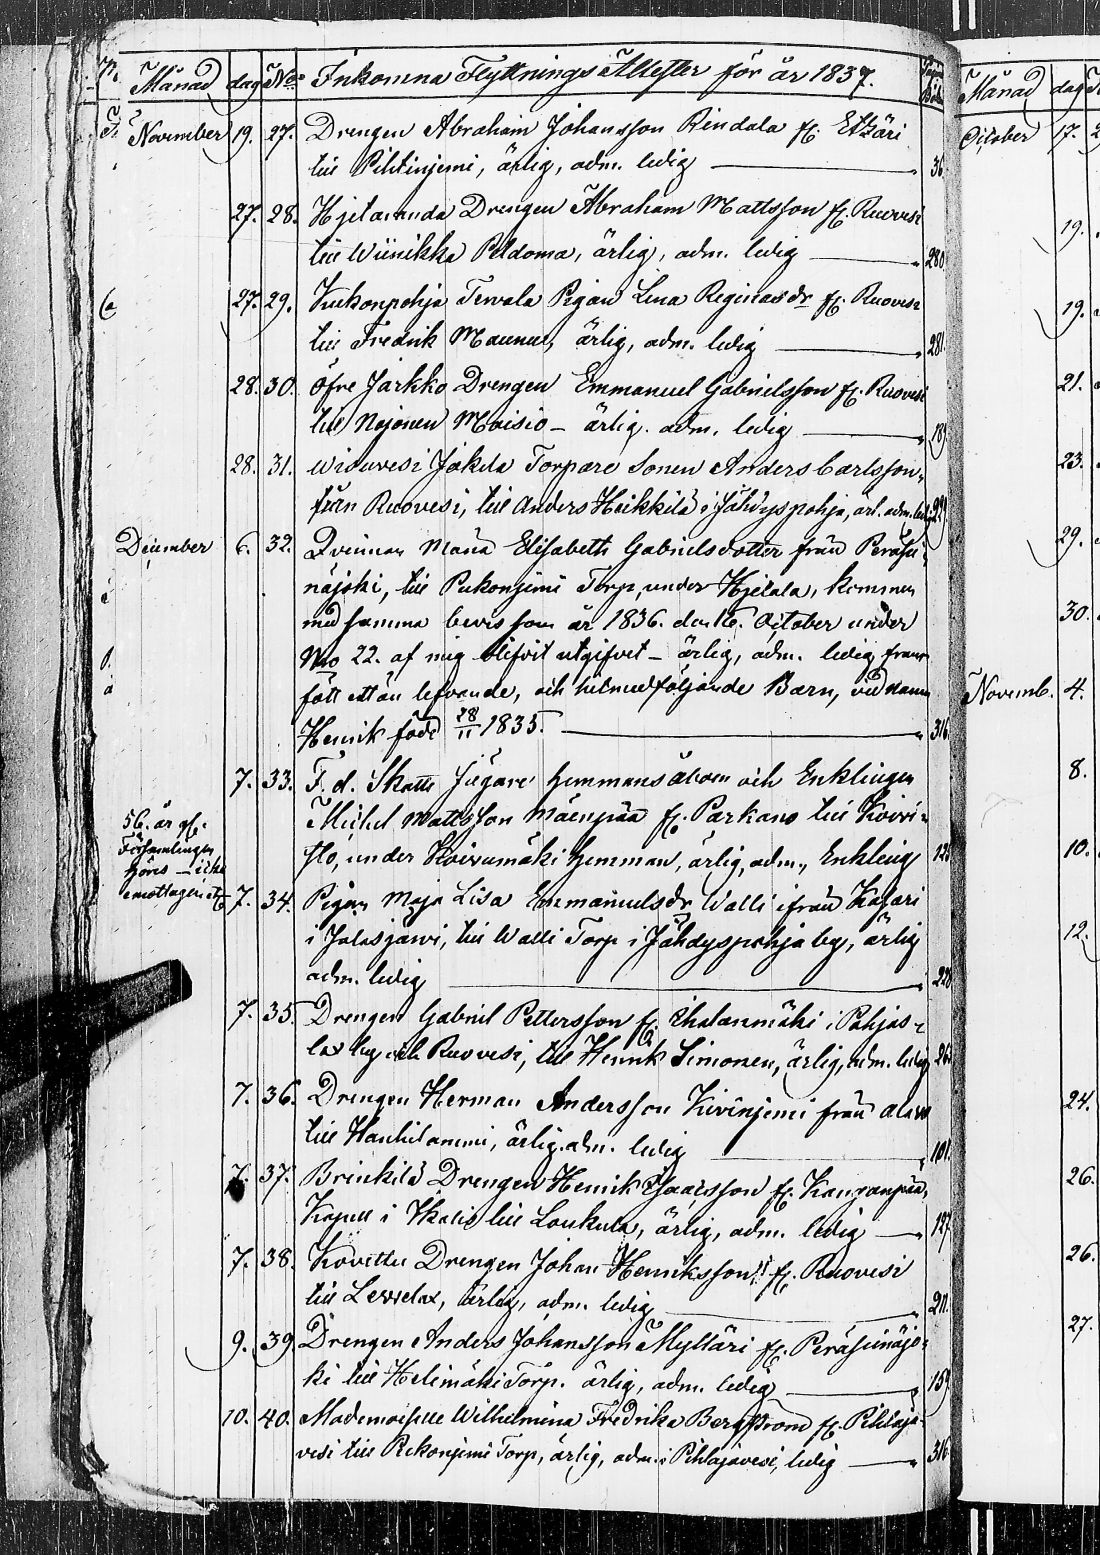 Månad dag No: Inkomna Flyttnings Attester för år 1837.
November 19. 27. Drengen Abraham Johansson Rindala fr. Etzäri
till Pihlinjemi, ärlig, adm. ledig 36.
27. 28. Hjelamunda Drengen Abraham Mattsson fr. Ruovesi
till Wiinikka Peldoma, ärlig, adm. ledig 280.
27. 29. Kukonpohja Tervala Pigan Lena Reginasdr fr. Ruovesi
till Fredrik Maunus, ärlig, adm. ledig 281.
28. 30. Öfre Jarkko Drengen Emmanuel Gabrielsson fr. Ruovesi
till Nojonen Moisio – ärlig. adm. ledig 189
28. 31. Wisuvesi Jakola Torpare Sonen Anders Carlsson,
från Ruovesi, till Anders Heikkilä i Jähdyspohja, ärl. adm. ledig 221
December 6. 32. Qvinnan Maria Elisabeth Gabrielsdotter från Peräsei-
näjoki, till Pukonjemi Torp, under Hjelala, kommen
med samma bevis som år 1836. den 16. October under
No 22. af mig blifvit utgifvet – ärlig, adm. ledig, fram-
fött ett än lefvande, och hitmedföljande Barn, vid namn
Henrik född 28/11 1835. 316.
7. 33. F. d. Skatte Jägare hemmans åboen och Enklingen
Michel Mattsson Mäenpää fr. Parkano till Koivi-
sto, under Koivumäki hemman, ärlig, adm., Enkling 123
56. år gl.
Församlingen
höres – icke
emottagen etc
7. 34. Pigan Maja Lisa Emmanuelsdr Walli ifrån Kasari
i Jalasjärvi, till Walli Torp i Jähdyspohja by, ärlig
adm. ledig 228
7. 35. Drengen Gabriel Pettersson fr. Ihalanmäki i Pohjas-
lax by och Ruovesi, till Henrik Simonen, ärlig, adm. ledig 26.
7. 36. Drengen Herman Andersson Kivinjemi från Alavo
till Hauhilammi, ärlig. adm. ledig 101.
7. 37. Brinkilä Drengen Henrik Isaacsson fr. Kangonpää,
Kapell i Ikalis till Loukula, ärlig, adm. ledig 127
7. 38. Kovettu Drengen Johan Henriksson fr. Ruovesi
till Lexelax, ärlig, adm. ledig 211.
9. 39. Drengen Anders Johansson Myltäri fr. Peräseinäjo-
ki till Helimäki Torp. ärlig, adm. ledig 159
10. 40. Mademoiselle Wilhelmina Fredrika Bergström fr. Pihlaja-
vesi till Pukonjemi Torp, ärlig, adm. i Pihlajavesi, ledig 316
Månad dag
October 17.
19.
19.
21.
23.
29.
30.
Novemb. 4.
8.
10.
12.
24.
26.
26.
27.